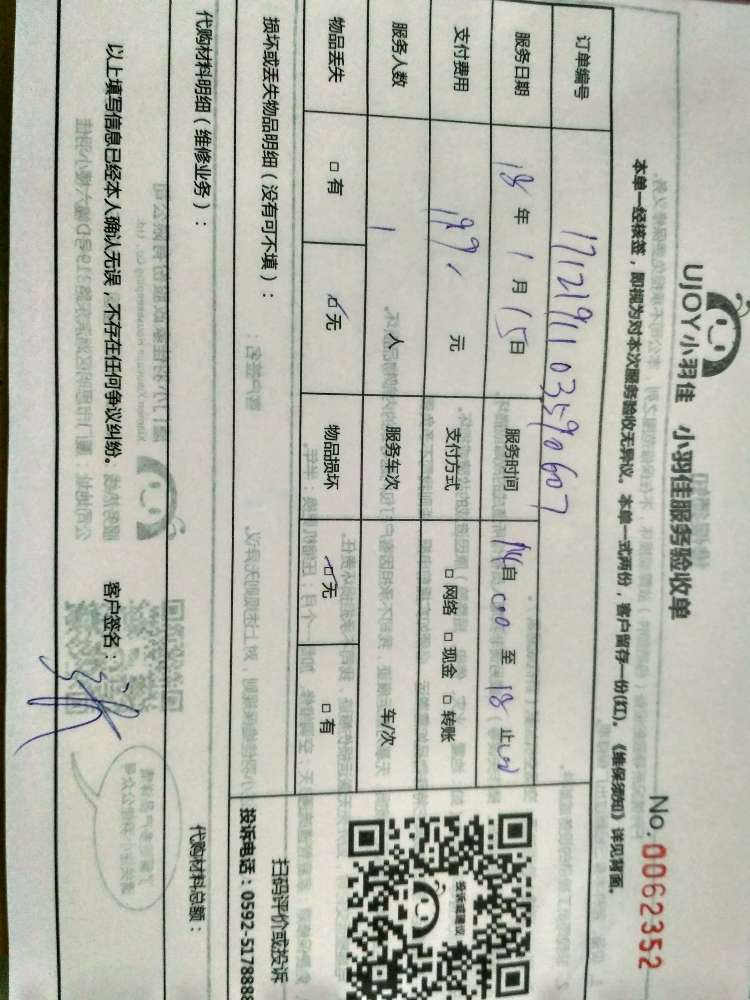 UJOY小羽佳 小羽佳服务验收单
No. 0062352
本单一经核签，即视为对本次服务验收无异议。本单一式两份，客户留存一份(红)。《维保须知》详见背面。
订单编号 1712191103590607
服务日期 18年1月15日 服务时间 14自:00至18止:00
支付费用 199元 支付方式 □网络 □现金 □转账
服务人数 1人 服务车次 车/次
物品丢失 □有 □无 物品损坏 □无 □有
损坏或丢失物品明细（没有可不填）：
投诉或建议
扫码评价或投诉
投诉电话：0592-5178888
代购材料明细（维修业务）： 代购材料总额：
以上填写信息已经本人确认无误，不存在任何争议纠纷。 客户签名：